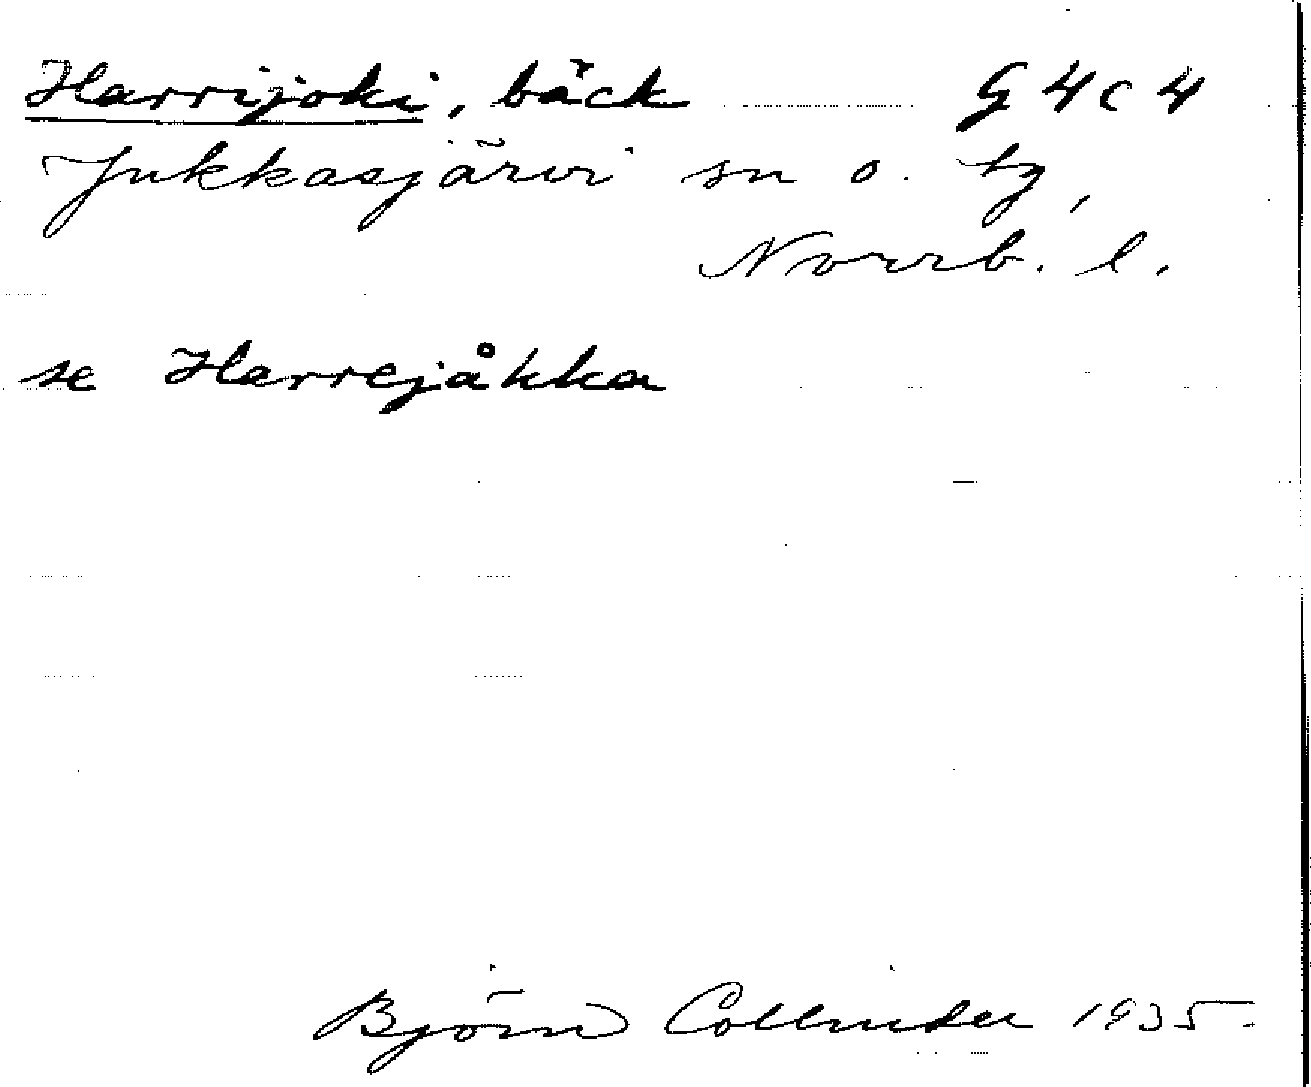 Harrijoki, bäck G 4 c 4
Jukkasjärvi sn o. tg,
Norrb. l.
se Harrejåkka
Björn Collinder 1935.